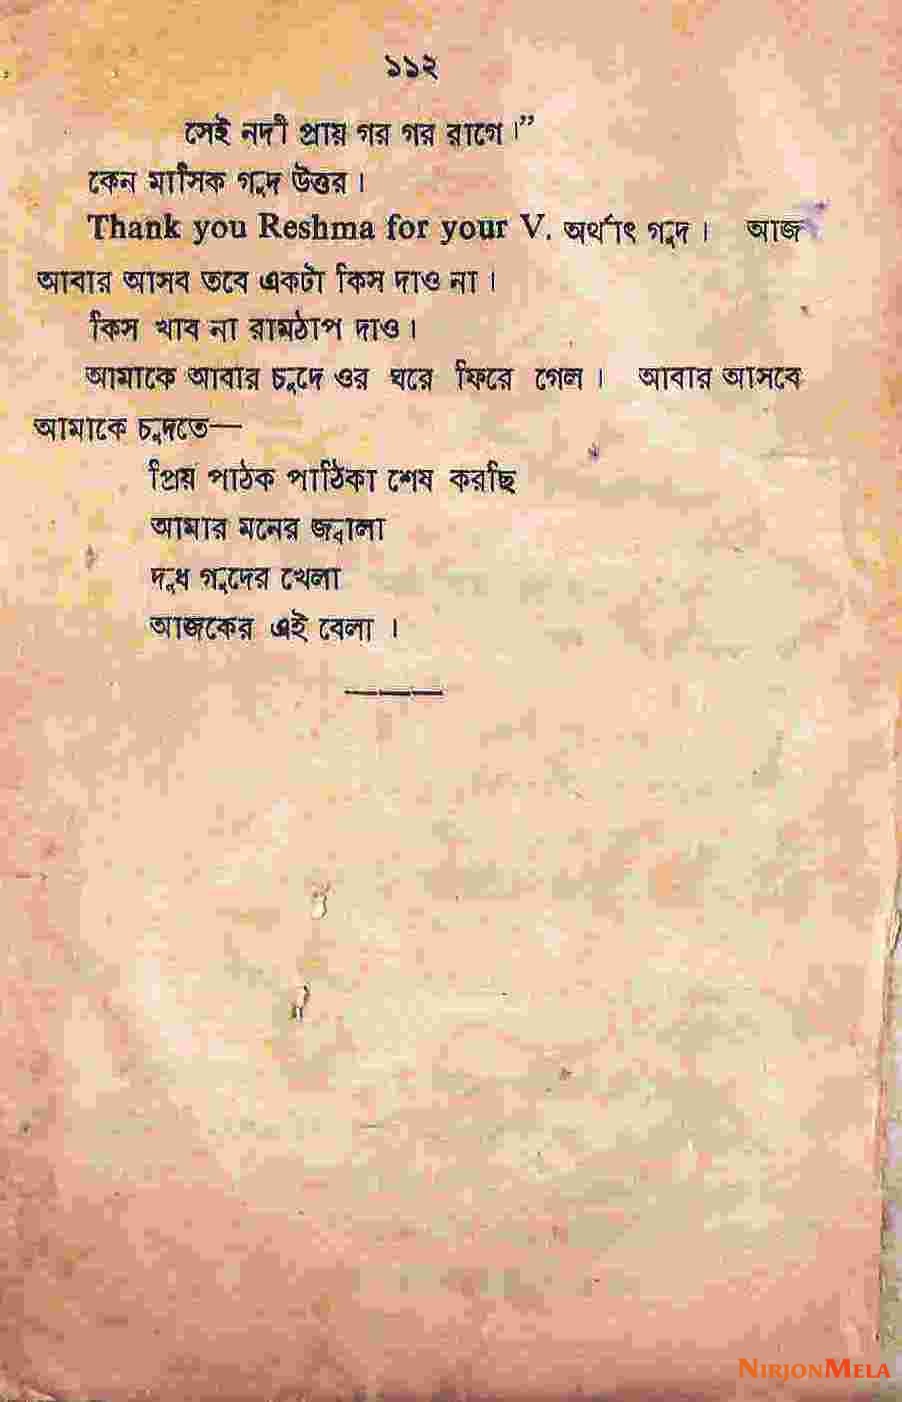 ১১২
সেই নদী প্রায় গর গর রাগে।”
কেন মাসিক গুদ উত্তর।
Thank you Reshma for your V. অর্থাৎ গুদ। আজ
আবার আসব তবে একটা কিস দাও না।
কিস খাব না রামঠাপ দাও।
আমাকে আবার চুদে ওর ঘরে ফিরে গেল। আবার আসবে
আমাকে চুদতে—
প্রিয় পাঠক পাঠিকা শেষ করছি
আমার মনের জ্বালা
দুধ গুদের খেলা
আজকের এই বেলা।
NIRJONMELA